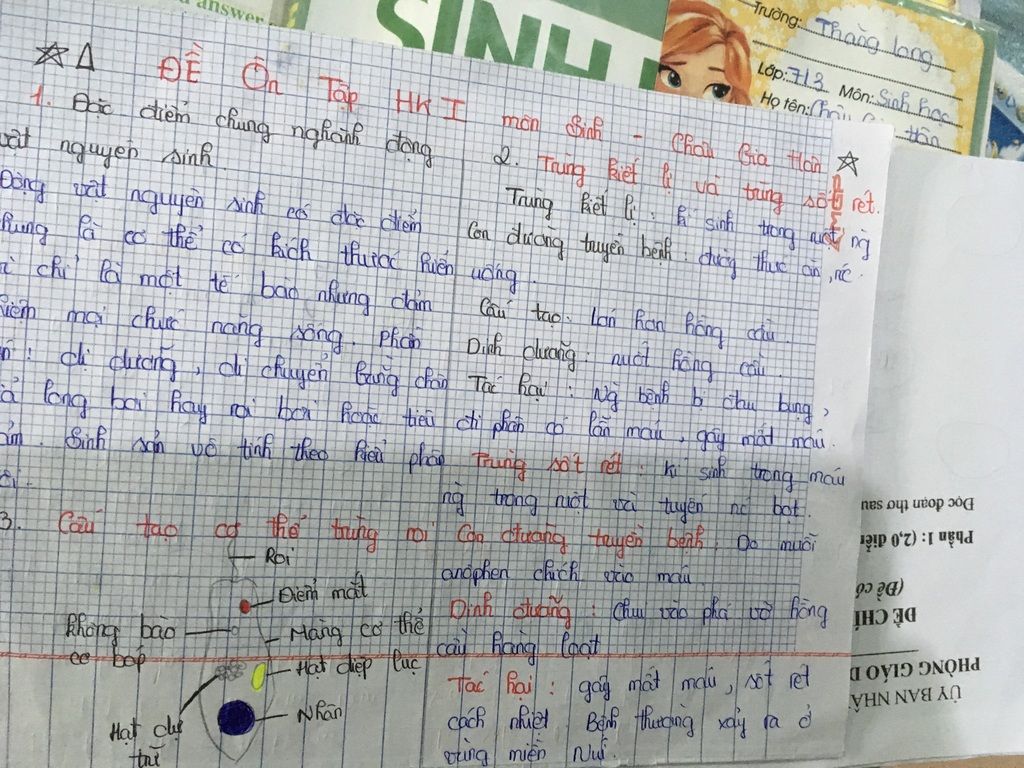 answer
SINH
Trường: Thăng Long
Lớp: 7/3 Môn: Sinh học
Họ tên: Châu Gia Hân
ĐỀ Ôn Tập HK I môn Sinh - Châu Gia Hân
1. Đặc điểm chung nghành động
vật nguyên sinh.
Động vật nguyên sinh có đặc điểm
chung là cơ thể có kích thước hiển
vi chỉ là một tế bào nhưng đảm
nhiệm mọi chức năng sống. phần
dị dưỡng, di chuyển bằng chân
giả lông bơi hay roi bơi hoặc tiêu
giảm. Sinh sản vô tính theo kiểu phân
đôi.
2. Trùng kiết lị và trùng sốt rét.
Trùng kiết lị: kí sinh trong ruột ng
Con đường truyền bệnh: đường thức ăn, nc
uống.
Cấu tạo: lớn hơn hồng cầu.
Dinh dưỡng: nuốt hồng cầu.
Tác hại: Ng bệnh bị đau bụng,
đi phân có lẫn máu, gây mất máu.
Trùng sốt rét: kí sinh trong máu
ng trong ruột và tuyến nc bọt.
Con đường truyền bệnh: Do muỗi
anôphen chích vào máu
Dinh dưỡng: chui vào phá vỡ hồng
cầu hàng loạt
Tác hại: gây mất máu, sốt rét
cách nhiệt. Bệnh thường xảy ra ở
vùng miền Núi.
3. Cấu tạo cơ thể trùng roi
Roi
Điểm mắt
Không bào
co bóp
Màng cơ thể
Hạt diệp lục
Hạt dự
trữ
Nhân
ỦY BAN NHÂ
PHÒNG GIÁO D
ĐỀ CHÍ
(Đề có
Phần 1: (2,0 điể
Đọc đoạn thơ sau